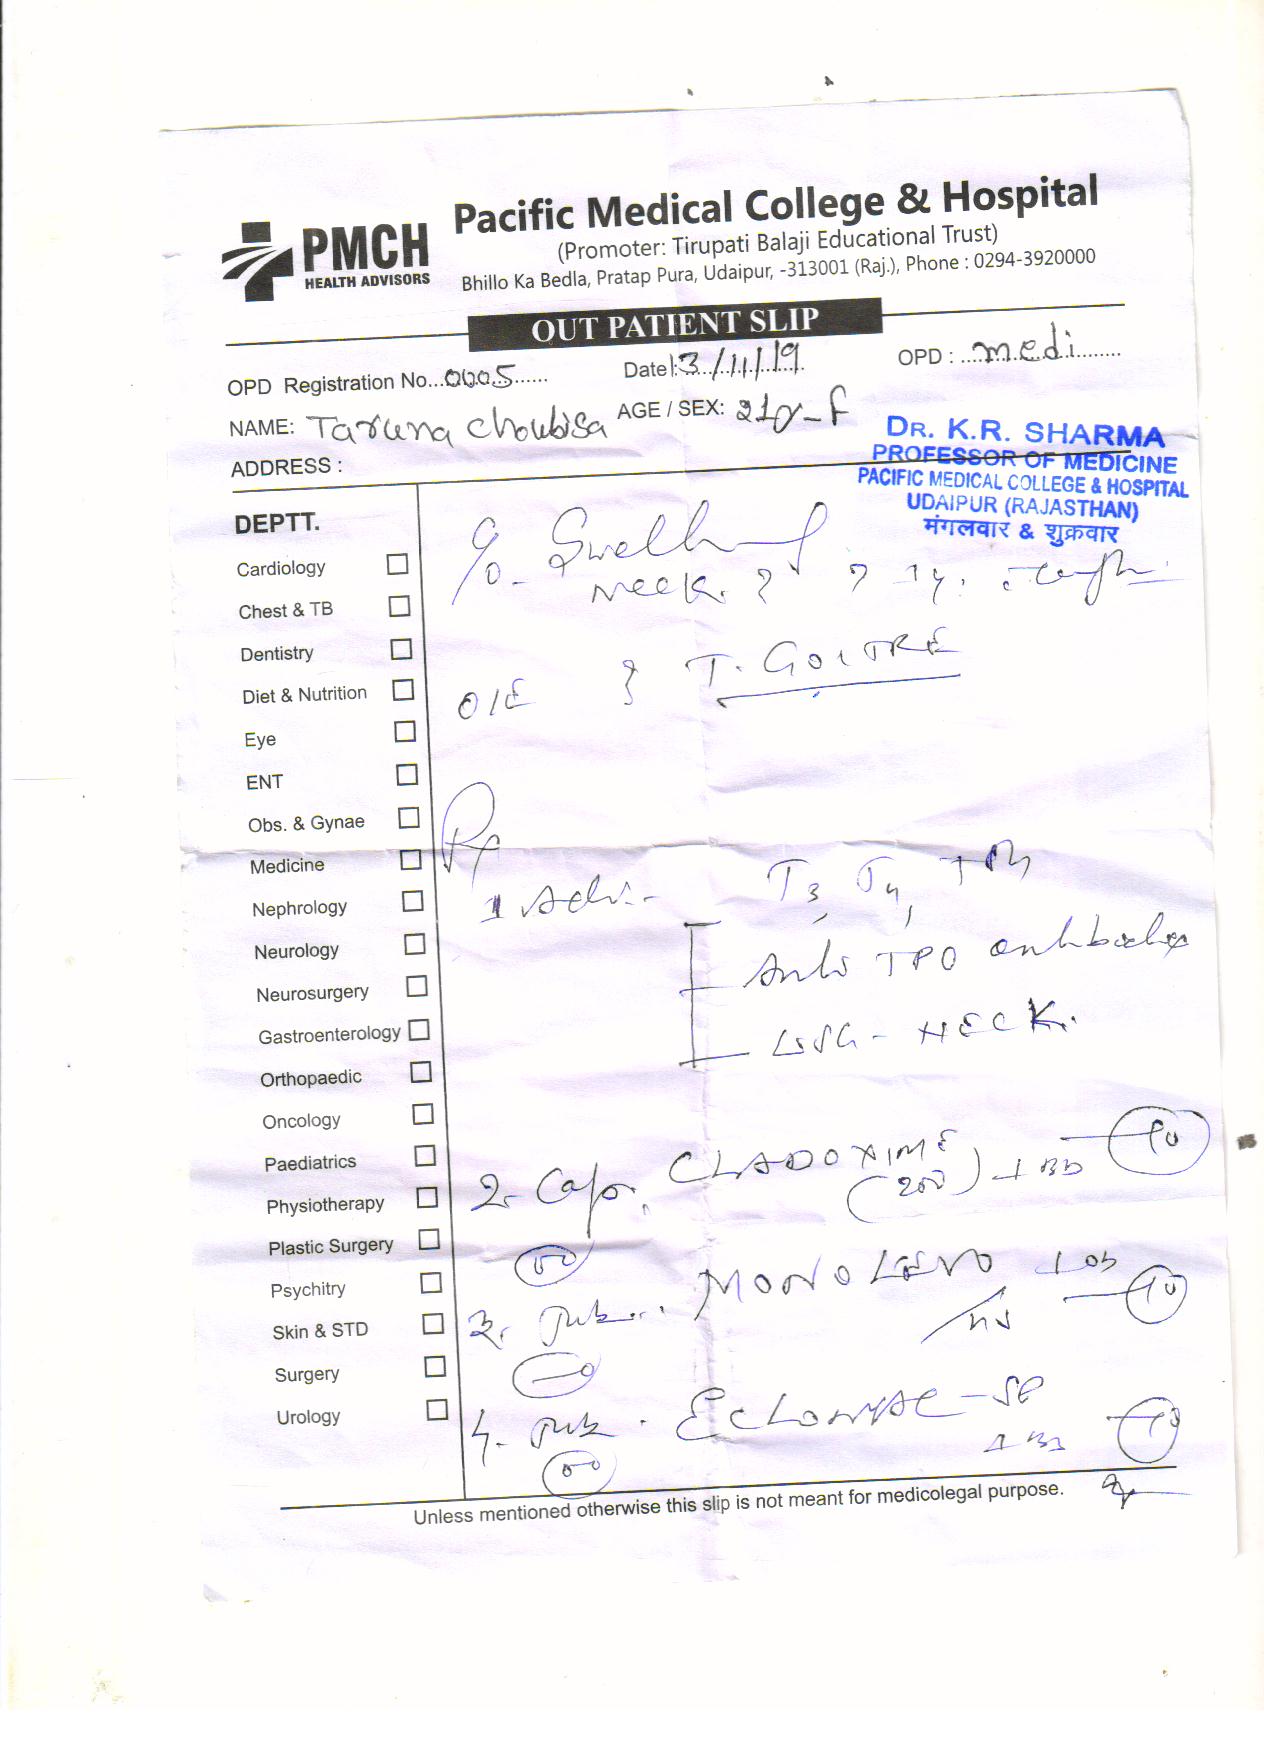 PMCH
HEALTH ADVISORS
Pacific Medical College & Hospital
(Promoter: Tirupati Balaji Educational Trust)
Bhillo Ka Bedla, Pratap Pura, Udaipur, -313001 (Raj.), Phone : 0294-3920000
OUT PATIENT SLIP
OPD Registration No...0005...... Date :13/11/19 OPD : ...medi........
NAME: Taruna Choubisa AGE / SEX: 21y-F
ADDRESS :
DR. K.R. SHARMA
PROFESSOR OF MEDICINE
PACIFIC MEDICAL COLLEGE & HOSPITAL
UDAIPUR (RAJASTHAN)
मंगलवार & शुक्रवार
DEPTT.
Cardiology
Chest & TB
Dentistry
Diet & Nutrition
Eye
ENT
Obs. & Gynae
Medicine
Nephrology
Neurology
Neurosurgery
Gastroenterology
Orthopaedic
Oncology
Paediatrics
Physiotherapy
Plastic Surgery
Psychitry
Skin & STD
Surgery
Urology
C/o - Swelling
neck
O/E T. GOITRE
Rx
1 Adv. - T3, T4, TSH
Anti TPO antibodies
USG - NECK.
2. Cap. CLADOXIME
(200) 1 BD 10
3. MONO 10
HS
4. - SP
1 BD 10
Unless mentioned otherwise this slip is not meant for medicolegal purpose.